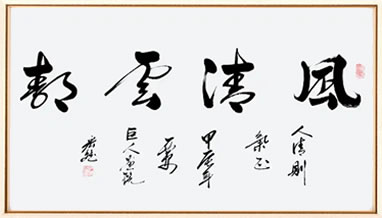 風清雲静
人清剛
氣正
甲辰年
巨人畫院